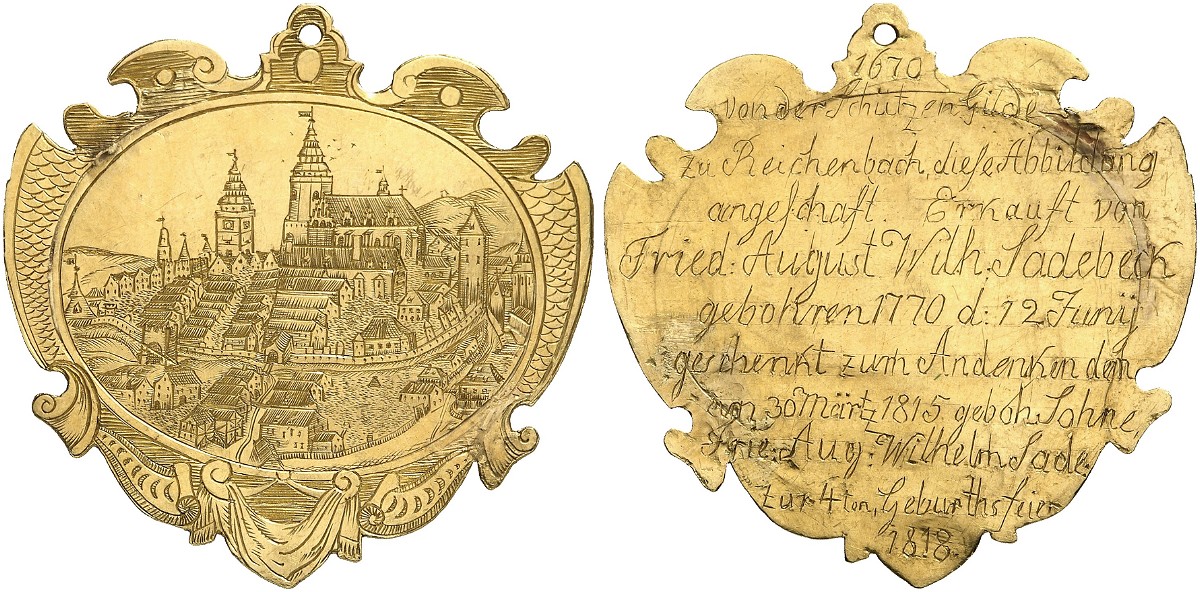 1670
von der Schützen Gilde
zu Reichenbach, diese Abbildung
angeschaft. Erkauft von
Fried: August Wilh. Sadebeck
gebohren 1770 d: 12 Junij
geschenkt zum Andenken dem
am 30 Märtz 1815 geboh Sohne
Frie: Aug: Wilhelm Sade:
zur 4ten, Geburthsfeier
1818.